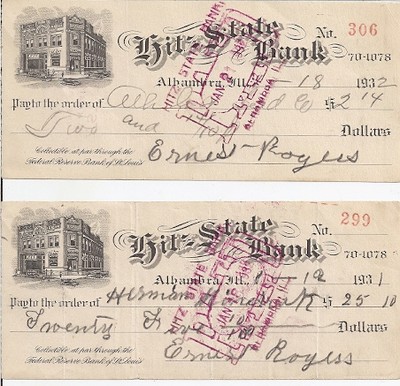 Hitz-State Bank
No. 306
70-1078
Alhambra, Ill. 18 1932
Pay to the order of Co $ 2
Two and no Dollars
Collectible at par through the
Federal Reserve Bank of St. Louis
Ernest Rogess
HITZ STATE BANK
JAN
ALHAMBRA
Hitz-State Bank
No. 299
70-1078
Alhambra, Ill. 1931
Pay to the order of Herman $ 25 10
Twenty Five Dollars
Collectible at par through the
Federal Reserve Bank of St. Louis
Ernest Rogess
HITZ STATE BANK
JAN
ALHAMBRA